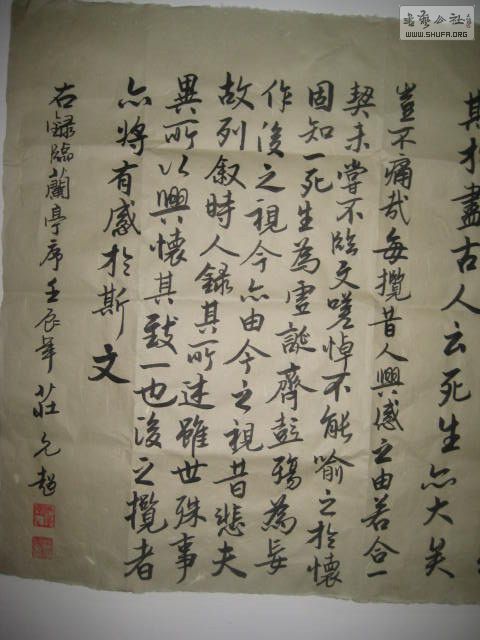 書藝公社
WWW.SHUFA.ORG
期於盡古人云死生亦大矣
豈不痛哉每攬昔人興感之由若合一
契未嘗不臨文嗟悼不能喻之於懷
固知一死生為虛誕齊彭殤為妄
作後之視今亦由今之視昔悲夫
故列敘時人錄其所述雖世殊事
異所以興懷其致一也後之攬者
亦將有感於斯文
右錄臨蘭亭序壬辰年莊允超